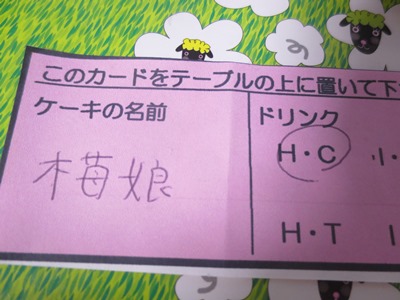 このカードをテーブルの上に置いて下
ケーキの名前
ドリンク
H・C
梅苺娘
H・T